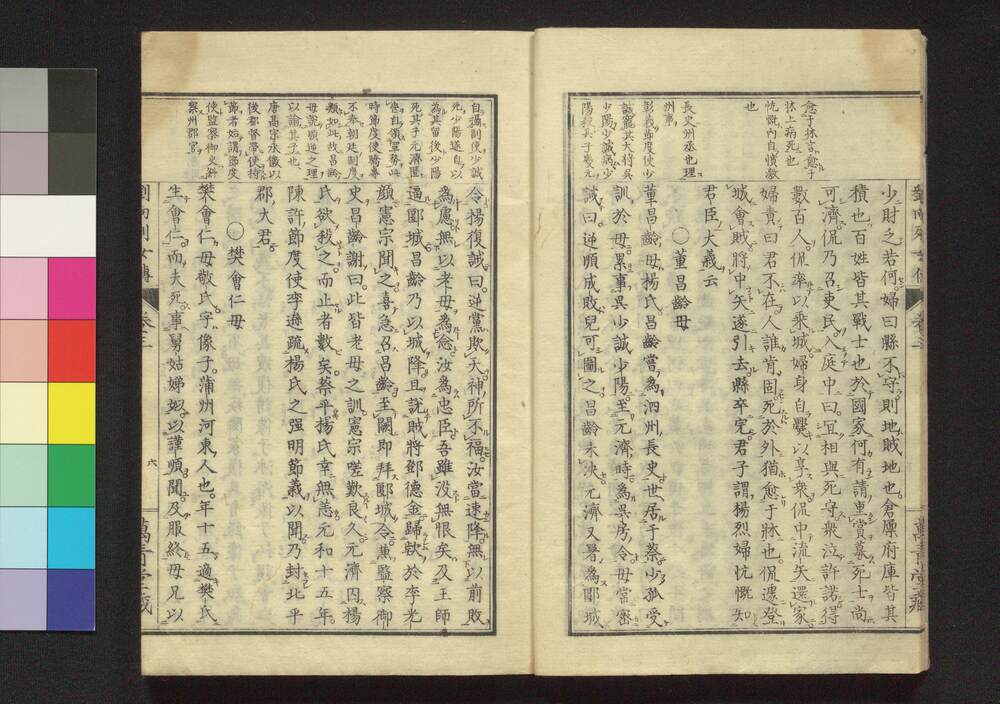 愈于牀言愈于
牀上病死也
忼慨内自憤激
也
長史州丞也理
州事
彰義節度使少
誠寵其大将吳
少陽少誠病少
陽殺其子慶元
少財之若何婦曰縣不守則地賊地也倉廩府庫皆其
積也百姓皆其戰士也於國家何有請重賞募死士尚
可濟侃乃召吏民入庭中曰宜相與死守衆泣許諾得
數百人侃率以乘城婦身自爨以享衆侃中流矢還家
婦責曰君不在人誰肯固死於外猶愈于牀也侃遽登
城會賊將中矢遂引去縣卒完君子謂楊烈婦忼慨知
君臣大義云
○董昌齡母
董昌齡母楊氏昌齡嘗爲泗州長史世居于蔡少孤受
訓於母累事吳少誠少陽至元濟時爲吳房令母常密
誠曰逆順成敗兒可圖之昌齡未決元濟又署爲郾城
自攝副使少誠
死少陽遂自以
為其留後少陽
死其子元濟匿
喪自領軍務此
時節度使驕專
不奉朝廷制度
類如此故昌齡
母說順逆之理
以諭其子也
唐高宗永徽以
後都督帶使持
節者始謂節度
使監察御史糾
察州郡官
令楊復誠曰逆黨欺天神所不福汝當速降無以前敗
為慮無以老母為念汝為忠臣吾雖没無恨矣及王師
逼郾城昌齡乃以城降且說賊將鄧德金歸欵於李光
顔憲宗聞之喜急召昌齡至闕即拜郾城令兼監察御
史昌齡謝曰此皆老母之訓憲宗嗟歎良久元濟囚楊
氏欲殺之而止者數矣蔡平楊氏幸無恙元和十五年
陳許節度使李遜疏楊氏之强明節義以聞乃封北平
郡大君
○樊會仁母
樊會仁母敬氏字像子蒲州河東人也年十五適樊氏
生會仁而夫死事舅姑娣姒以謹順聞及服終母兄以
六